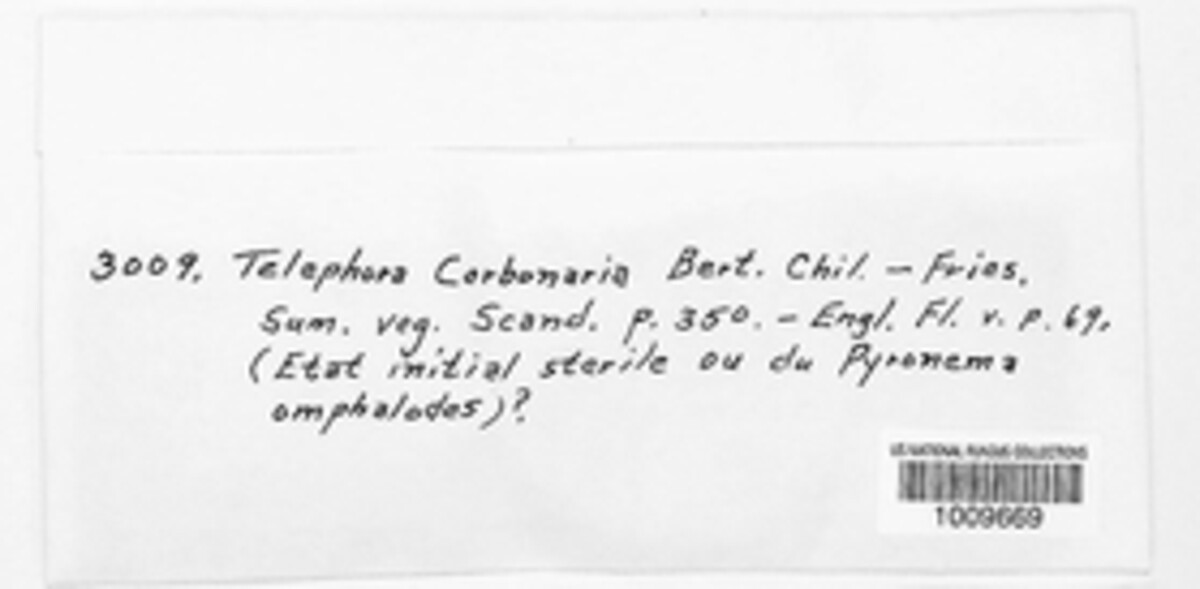 3009. Telephora Carbonaria Bert. Chil. – Fries.
Sum. veg. Scand. p. 350. – Engl. Fl. v. p. 69.
(Etat initial sterile ou du Pyronema
omphalodes)?
US NATIONAL FUNGUS COLLECTIONS
1009669